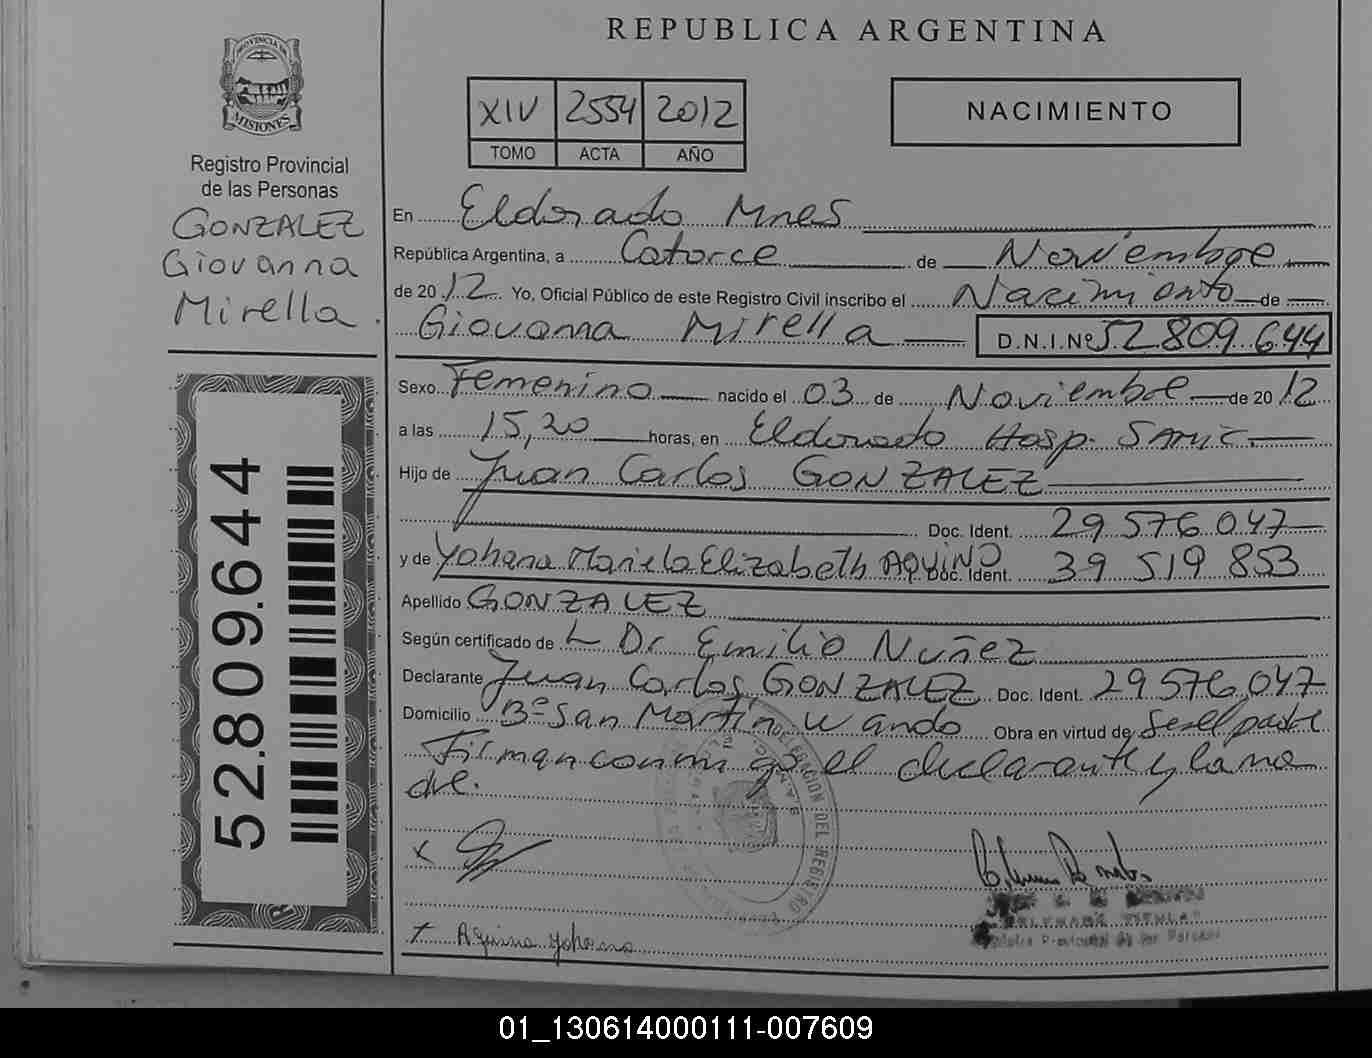 REPUBLICA ARGENTINA
PROVINCIA DE
MISIONES
XIV 2554 2012
TOMO ACTA AÑO
NACIMIENTO
Registro Provincial
de las Personas
GONZALEZ
Giovanna
Mirella.
52.809.644
En Eldorado Mnes
República Argentina, a Catorce de Noviembre
de 2012. Yo, Oficial Público de este Registro Civil inscribo el Nacimiento de
Giovanna Mirella D.N.I.Nº 52.809.644
Sexo Femenino nacido el 03 de Noviembre de 2012
a las 15,20 horas, en Eldorado Hosp. SAMIC
Hijo de Juan Carlos GONZALEZ
Doc. Ident. 29.576.047
y de Yohana Mariela Elizabeth AQUINO Doc. Ident. 39 519 853
Apellido GONZALEZ
Según certificado de Dr Emilio Nuñez
Declarante Juan Carlos GONZALEZ Doc. Ident. 29576.047
Domicilio Bº San Martin Wanda Obra en virtud de ser el padre
Firman conmigo el declarante y la ma
dre.
DELEGACION DEL REGISTRO
x
Aquino Yohana
Registro Provincial de las Personas
01_130614000111-007609